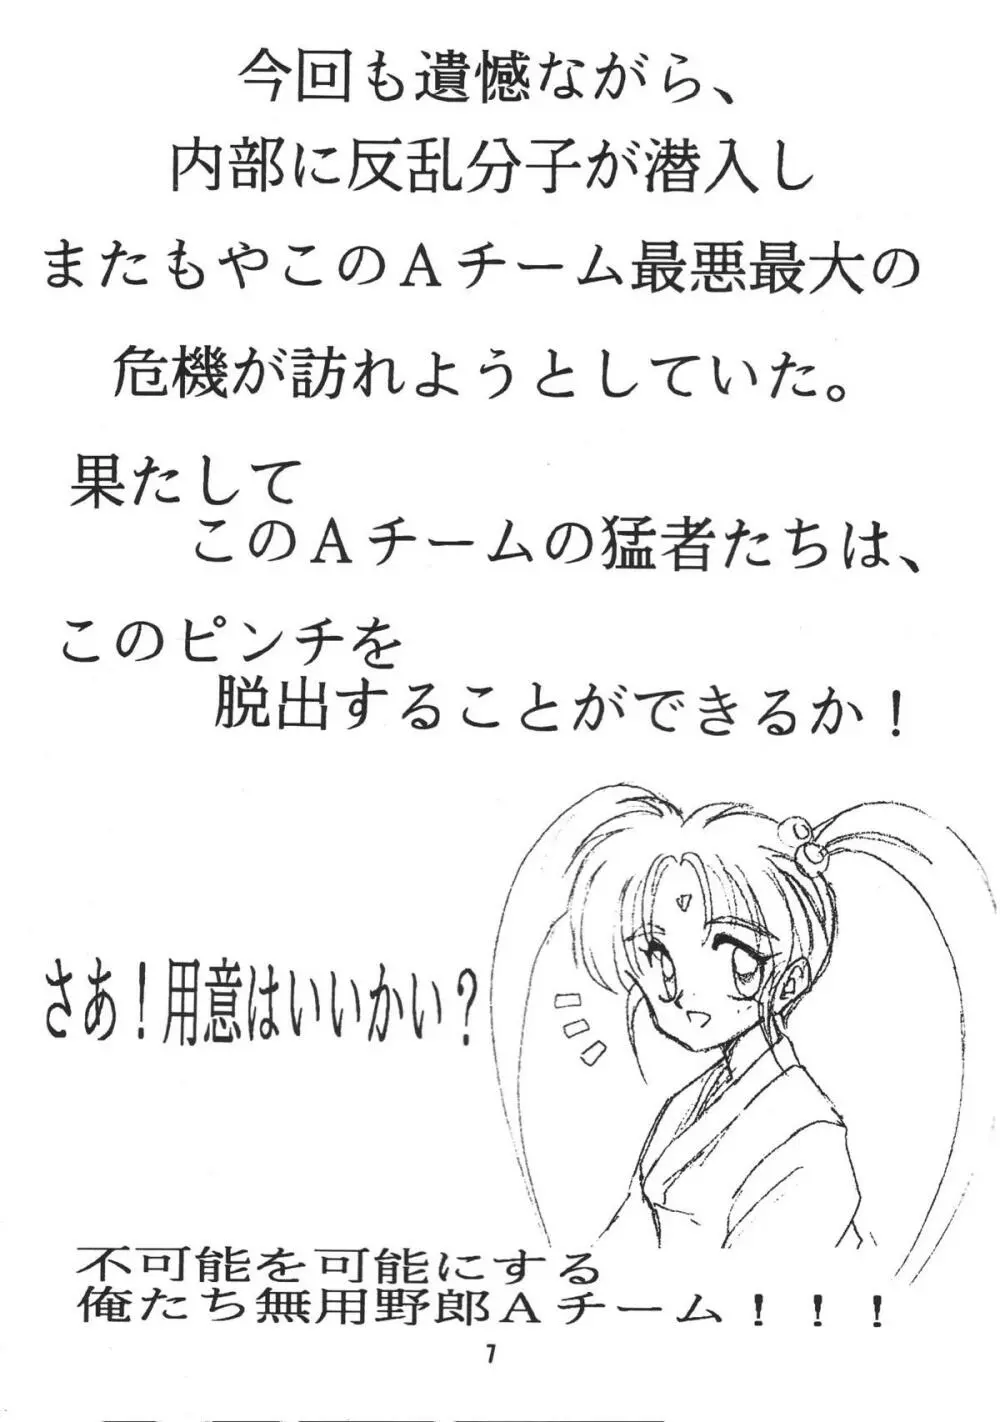 今回も遺憾ながら、
内部に反乱分子が潜入し
またもやこのＡチーム最悪最大の
危機が訪れようとしていた。
果たして
このＡチームの猛者たちは、
このピンチを
脱出することができるか！
さあ！用意はいいかい？
不可能を可能にする
俺たち無用野郎Ａチーム！！！
7